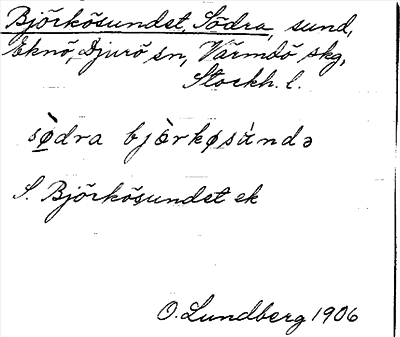 Björkösundet, Södra, sund,
Eknö, Djurö sn, Värmdö skg,
Stockh. l.
sø̀dra bjø̀rkøsùndə
S. Björkösundet ek
O. Lundberg 1906